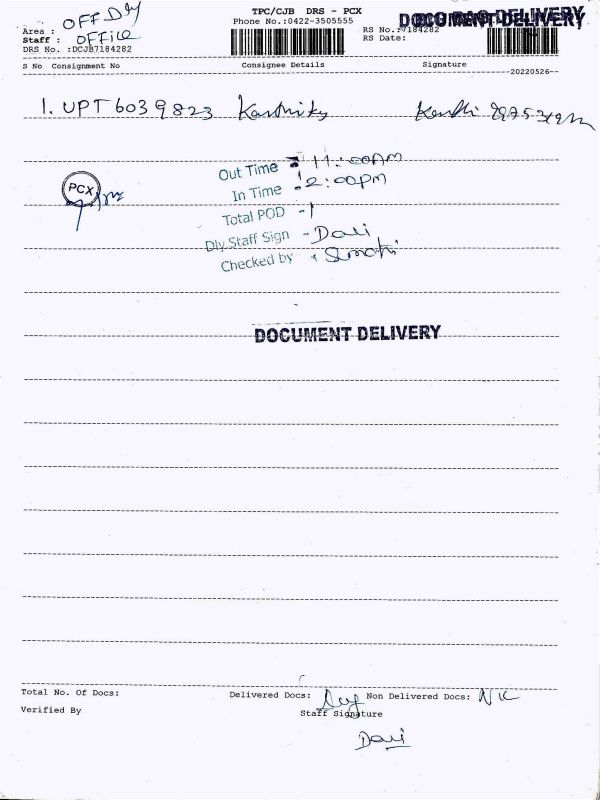 TPC/CJB DRS - PCX
Area : OFF Dly
Phone No.:0422-3505555
DOCUMENT DELIVERY
Staff : OFFICE
RS No.:7184282
DRS No. :DCJB7184282
RS Date:
S No Consignment No Consignee Details Signature
20220526
1. UPT 6039823
PCX
Out Time 11:00AM
In Time 2:00pm
Total POD - 1
Dly Staff Sign -
Checked by
DOCUMENT DELIVERY
Total No. Of Docs: Delivered Docs: Non Delivered Docs:
Verified By Staff Signature